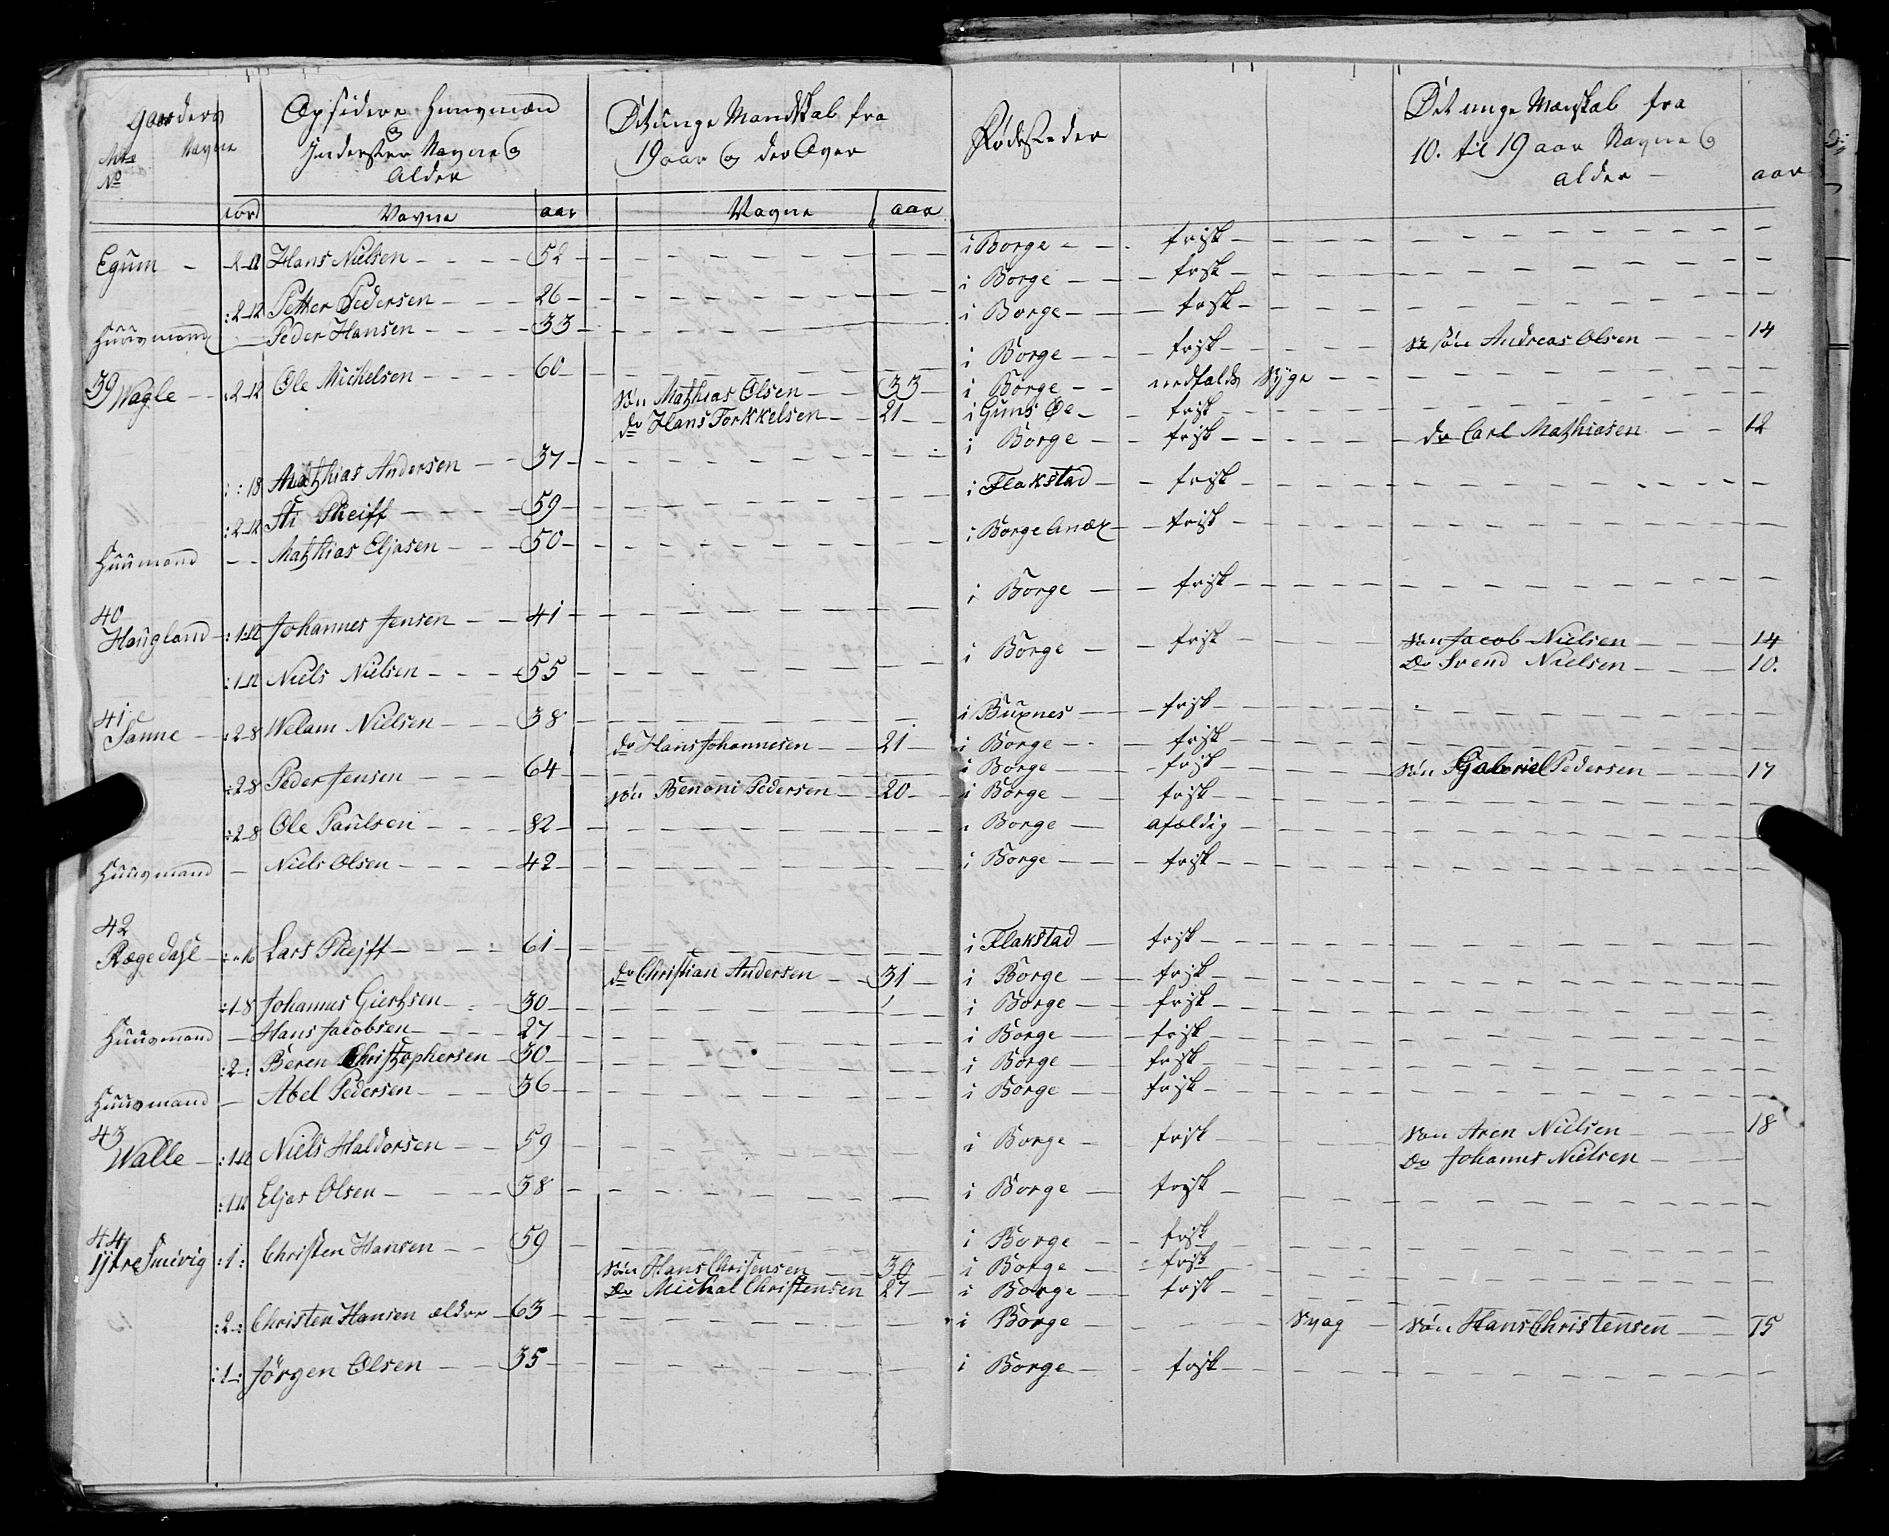 gaarders Opsidere Huusmænd Det unge Mandskab fra Fødesteder Det unge Manskab fra
Mtr Navne og Indersters Navne og 19 aar og der Over 10. til 19 aar Navne og
No Alder alder aar
iord Navne aar Navne aar
Egum 2-12 Hans Nielsen 52 i Borge frisk
:2-12 Petter Pedersen 26 i Borge frisk
Huusmand Peder Hansen 33 i Borge frisk
39 Wagle :2-12 Ole Michelsen 60 i Borge frisk søn Andreas Olsen 14
søn Mathias Olsen 33 i Borge nedfalds Syge
do Hans Torkkelsen 21 i Guns Øe frisk
:18 Mathias Andersen 37 i Borge frisk do Carl Mathiasen 12
:2-12 Pheiff 59 i Flakstad frisk
Huusmand Mathias Eljasen 50 i Borge Anæx frisk
40
Haugland :1-12 Johannes Jensen 41 i Borge frisk
:1-12 Niels Nielsen 55 i Borge frisk søn Jacob Nielsen 14
Do Svend Nielsen 10.
41
Sanne :2-8 Welam Nielsen 38 i Buxnes frisk
do Hans Johannesen 21 i Borge frisk
:2-8 Peder Jensen 64 i Borge frisk søn Gabriel Pedersen 17
søn Benoni Pedersen 20 i Borge frisk
:2-8 Ole Paulsen 82 i Borge afældig
Huusmand Niels Olsen 42 i Borge frisk
42
Rægedahl Lars Phejff 61 i Flakstad frisk
do Christian Andersen 31 i Borge frisk
:1-8 Johannes Giertsen 30 i Borge frisk
Huusmand Hans Jacobsen 27 i Borge frisk
:2-: Beren Christophersen 30 i Borge frisk
Huusmand Abel Pedersen 36 i Borge frisk
43
Walle :1-12 Niels Haldorsen 59 i Borge frisk søn Aren Nielsen 18
Do Johannes Nielsen
:1-12 Eljas Olsen 38 i Borge frisk
44
Ijtre Smivig :1: Christen Hansen 59 i Borge frisk
søn Hans Chrisensen 30 i Borge frisk
Do Michal Christensen 27 i Borge frisk
:2-: Christen Hansen ældre 63 i Borge svag søn Hans Christensen 15
:1-: Jörgen Olsen 35 i Borge frisk